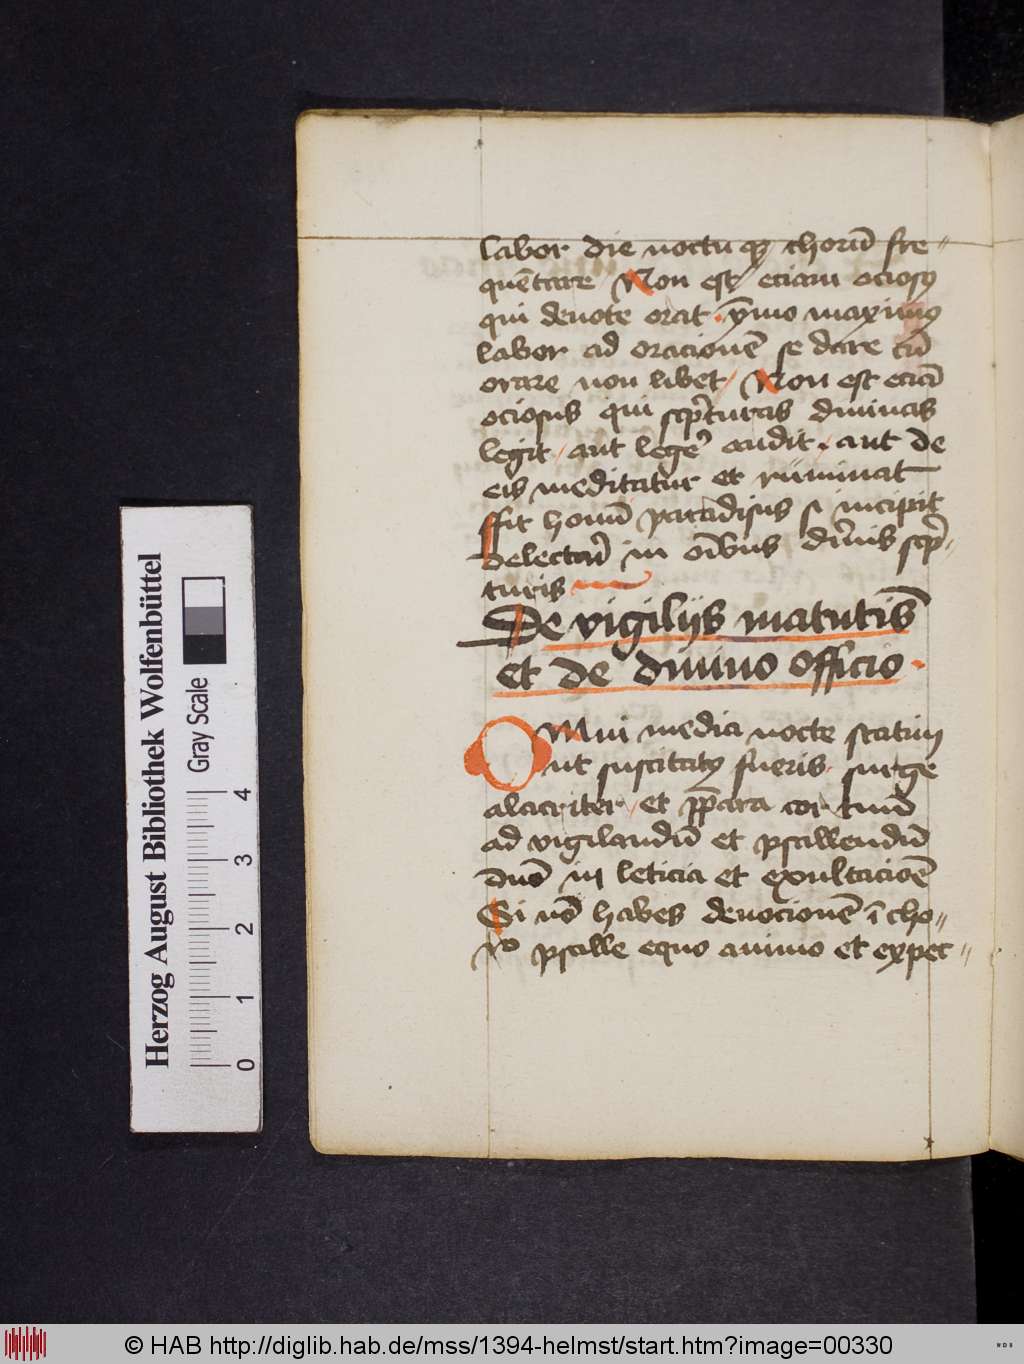 labor die noctu qꝫ chorū fre〃
quētare Non est eciam ociosꝰ
qui deuote orat · ymo maximꝰ
labor ad oracionē se dare cū
orare non libet / Non est eciā
ociosus qui scpͥturas diuinas
legit / aut legeͬ audit · aut de
eis meditatur et ruminat
ffit homī paradisus si incipit
delectaͬi in oībus diuīis scpͥ〃
turis
De vigiliis matutīs
et de diuino officio ·
Omni media nocte statim
ut suscitatꝰ fueris · surge
alacriter / et p̄para cor tuū
ad vigilandū et psallendū
dnō in leticia et exultacioē
Si nō habes deuocionē ī cho〃
ro psalle equo animo et expec〃
Herzog August Bibliothek Wolfenbüttel
Gray Scale
0 1 2 3 4
© HAB http://diglib.hab.de/mss/1394-helmst/start.htm?image=00330